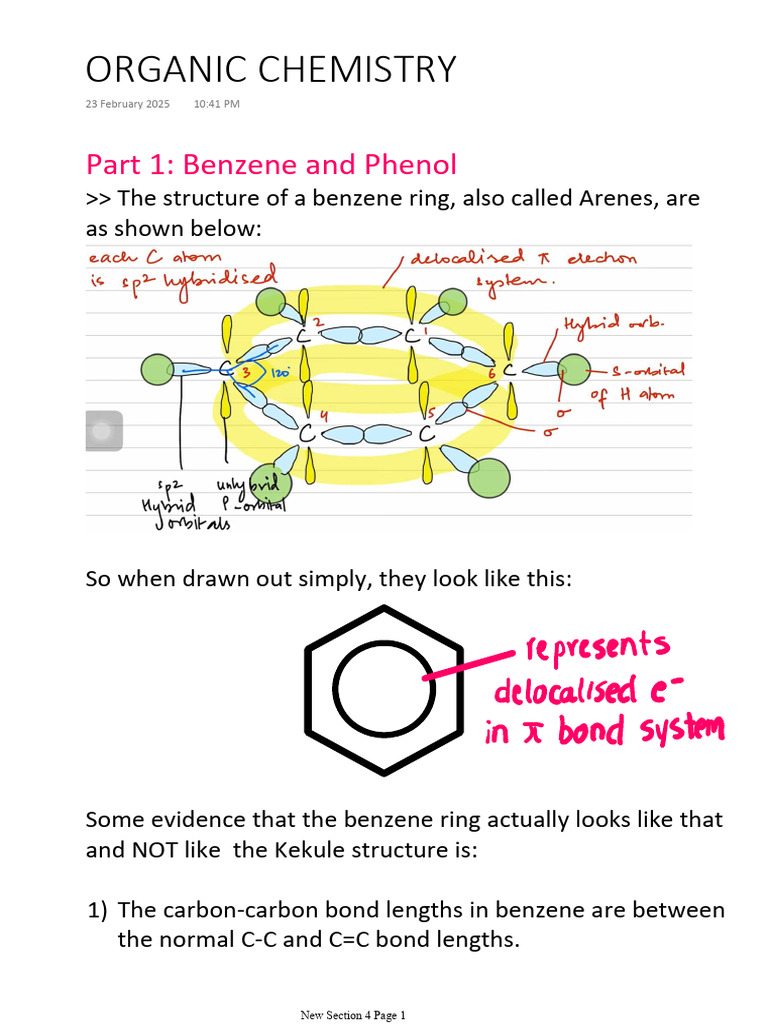 ORGANIC CHEMISTRY
23 February 2025 10:41 PM
Part 1: Benzene and Phenol
>> The structure of a benzene ring, also called Arenes, are
as shown below:
each C atom
is sp2 hybridised
delocalised π electron
system.
Hybrid orb.
2
C
1
C
C
3
120°
6
C
S-orbital
of H atom
σ
4
C
5
C
σ
sp2
Hybrid
orbitals
unhybrid
P-orbital
So when drawn out simply, they look like this:
represents
delocalised e⁻
in π bond system
Some evidence that the benzene ring actually looks like that
and NOT like the Kekule structure is:
1) The carbon-carbon bond lengths in benzene are between
the normal C-C and C=C bond lengths.
New Section 4 Page 1